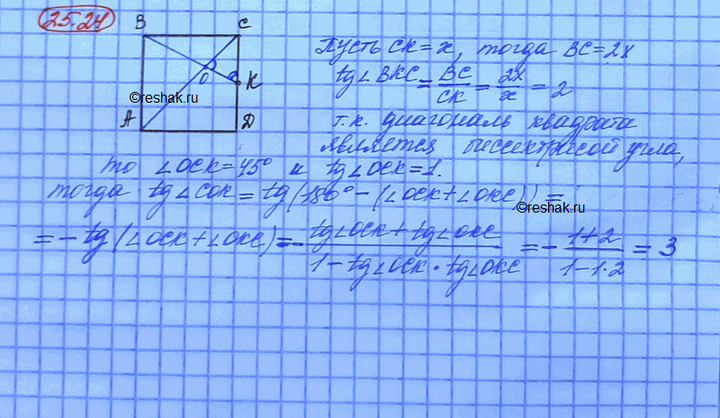 25.24
B C
Пусть CK = x, тогда BC = 2x
O K
tg∠BKC = BC/CK = 2x/x = 2
©reshak.ru
A D
т.к. диагональ квадрата
является биссектрисой угла,
то ∠OCK = 45° и tg∠OCK = 1.
тогда tg∠COK = tg(180° - (∠OCK + ∠OKC)) =
©reshak.ru
= - tg(∠OCK + ∠OKC) = - tg∠OCK + tg∠OKC / 1 - tg∠OCK · tg∠OKC = - 1+2 / 1-1·2 = 3